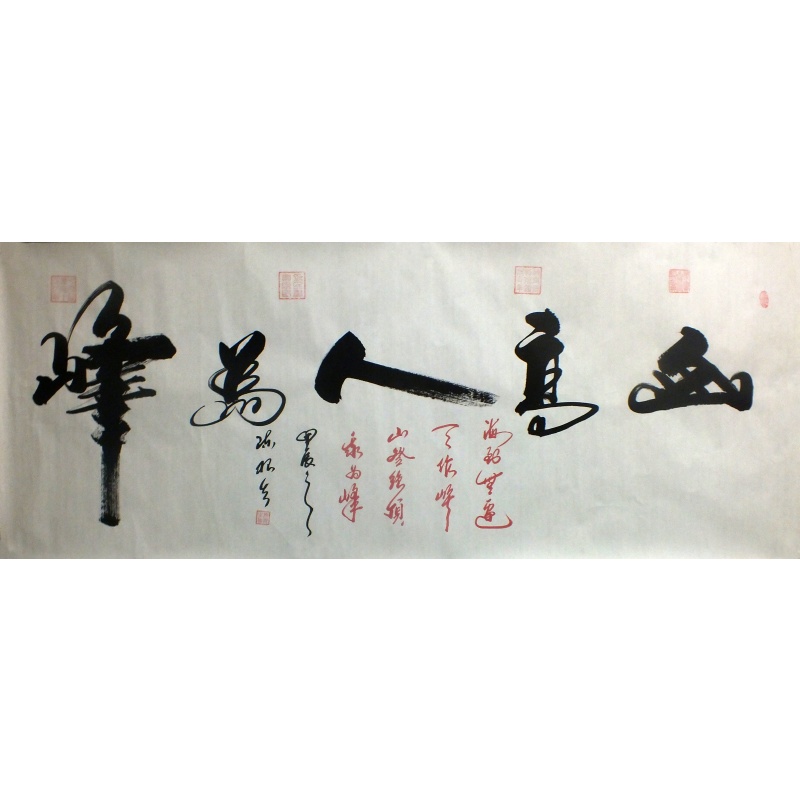 山高人為峰
海到無邊
天作岸
山登絕頂
我為峰
甲辰之